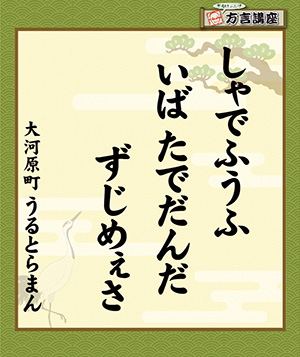 方言講座
しゃでふうふ
いば たでだんだ
ずじめぇさ
大河原町 うるとらまん